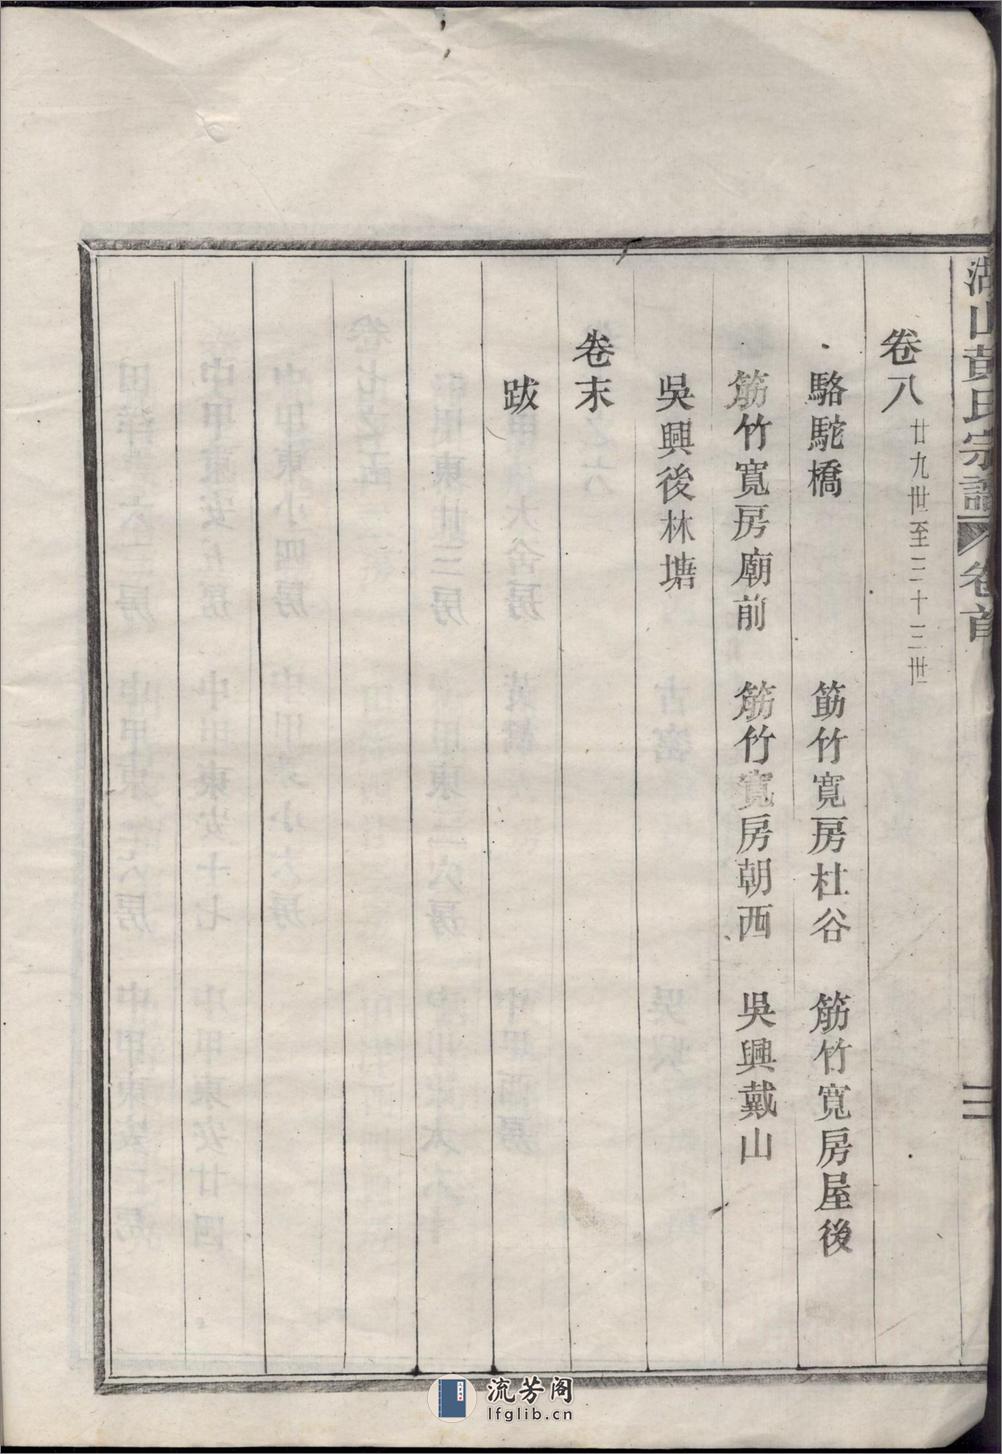 湖山黃氏宗譜 卷首 二
卷八 廿九世至三十三世
駱駝橋 筋竹寬房杜谷 筋竹寬房屋後
筋竹寬房廟前 筋竹寬房朝西 吳興戴山
吳興後林塘
卷末
跋
流芳阁
lfglib.cn